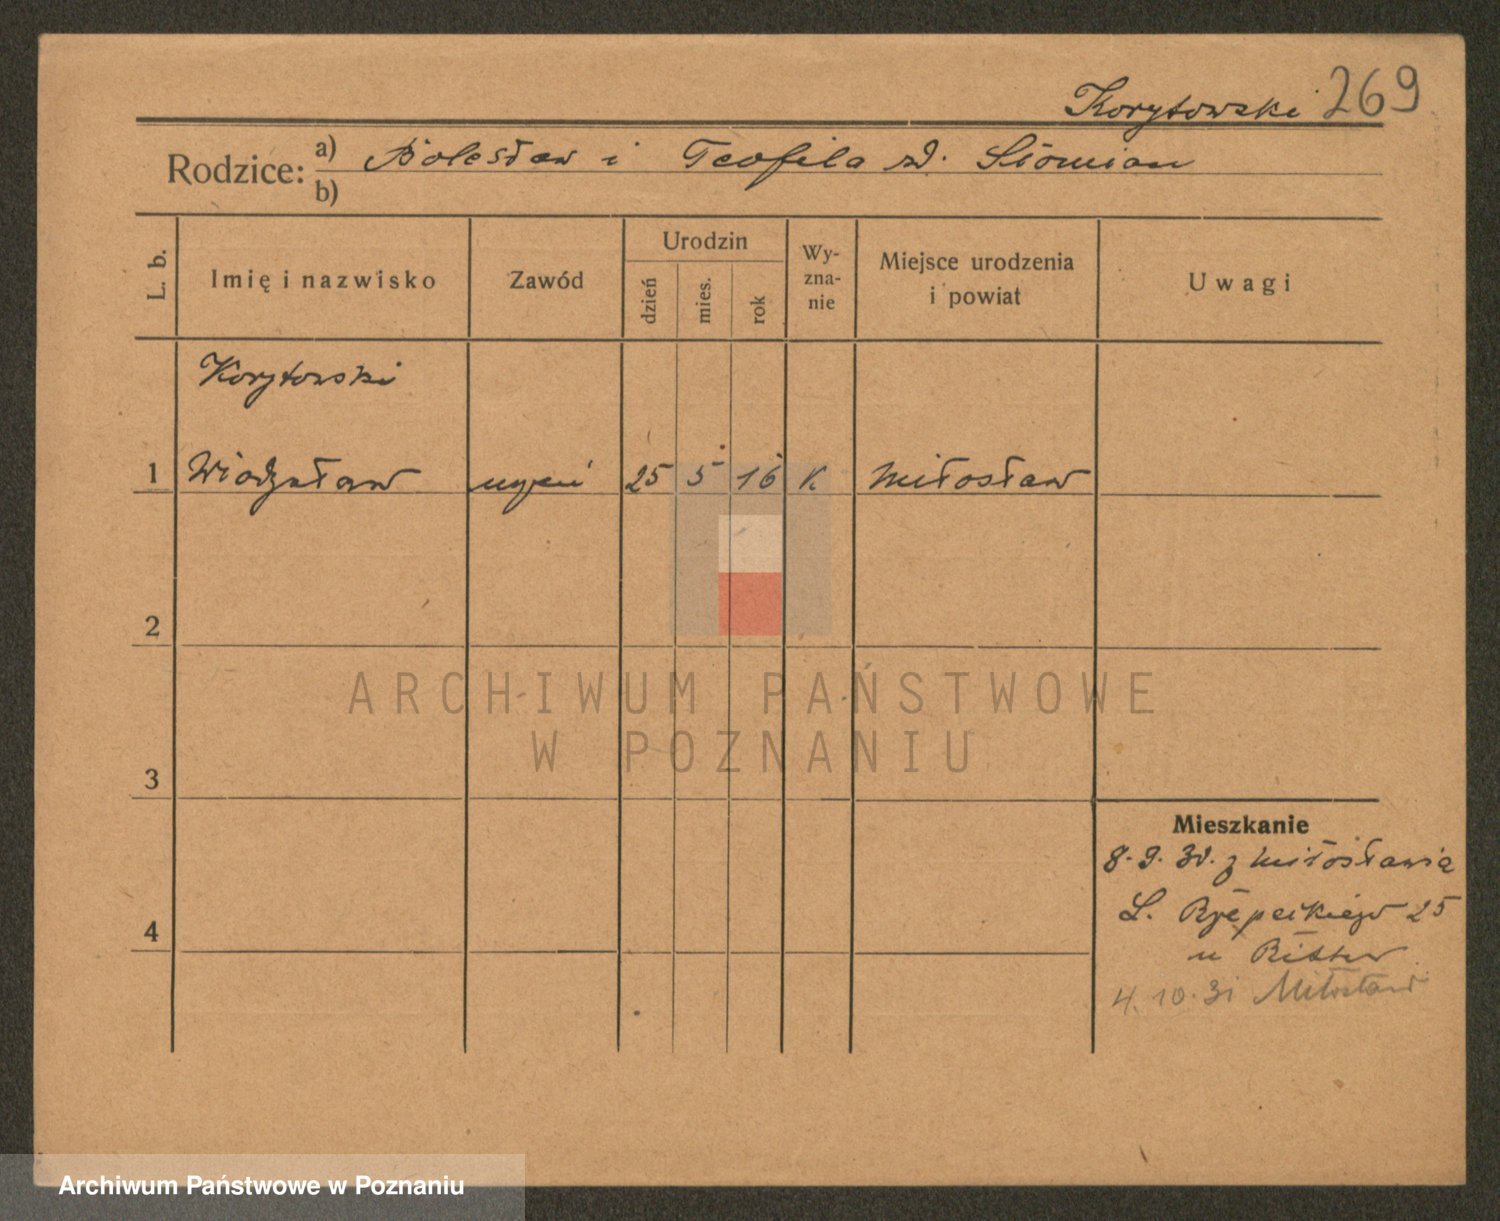 Korytowski 269
Rodzice: a) Bolesław i Teofila z d. Słomian
b)
L. b.
Imię i nazwisko
Zawód
Urodzin
dzień
mies.
rok
Wy-
zna-
nie
Miejsce urodzenia
i powiat
Uwagi
Korytowski
1 Włodzysław uczeń 25 5 16 K Miłosław
2
ARCHIWUM PAŃSTWOWE
W POZNANIU
3
Mieszkanie
8.9.30. z Miłosławia
L. Rzepeckiego 25
4
u
4.10.31 Miłosław
Archiwum Państwowe w Poznaniu